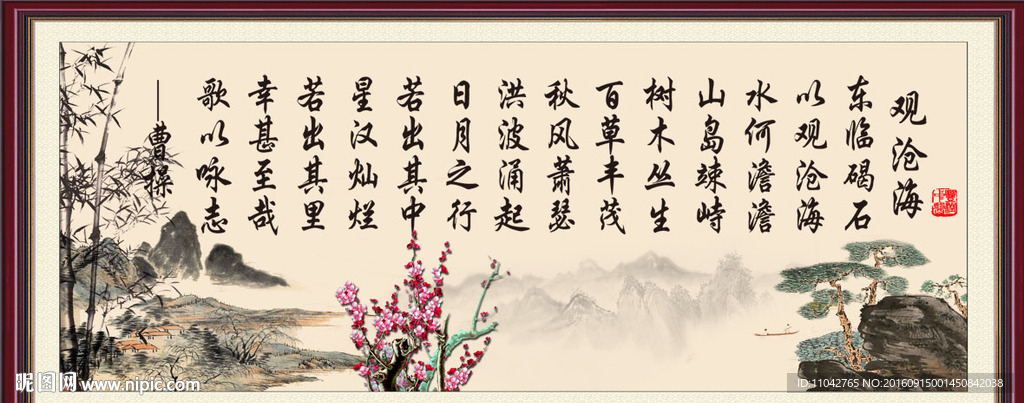 观沧海
东临碣石
以观沧海
水何澹澹
山岛竦峙
树木丛生
百草丰茂
秋风萧瑟
洪波涌起
日月之行
若出其中
星汉灿烂
若出其里
幸甚至哉
歌以咏志
——曹操
昵图网 www.nipic.com
ID:11042765 NO:20160915001450842038